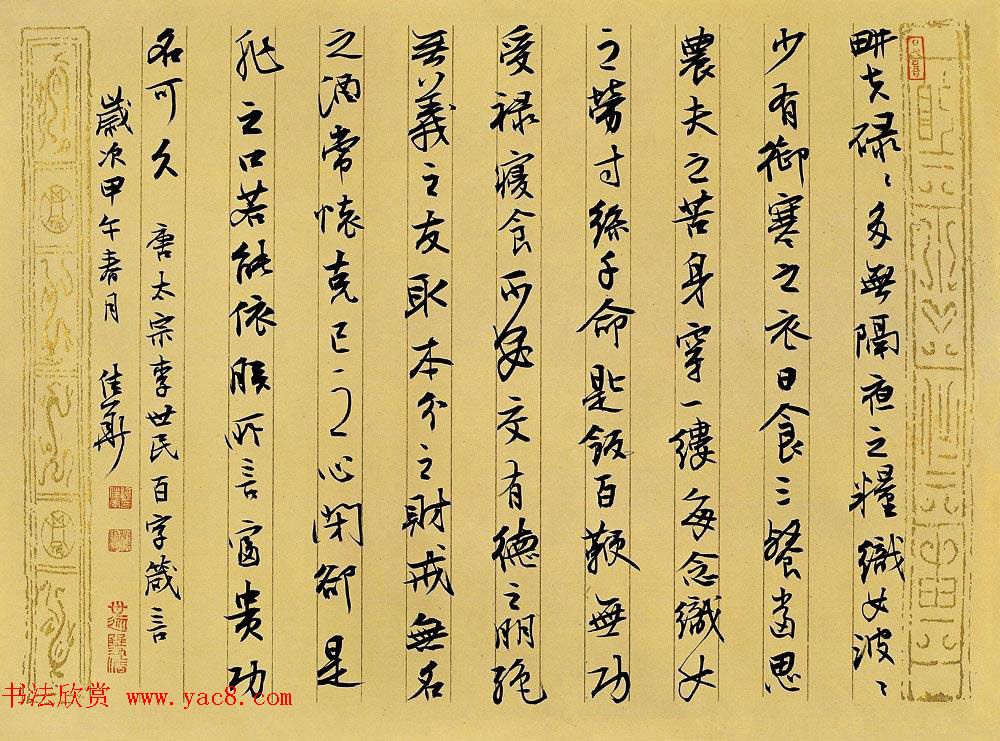 耕夫碌〻多無隔夜之糧織女波〻
少有御寒之衣日食三餐當思
農夫之苦身穿一縷每念織女
之勞寸絲千命匙飯百鞭無功
受祿寢食不安交有德之朋絕
無義之友取本分之財戒無名
之酒常懷克己之心閉卻是
非之口若能依朕所言富貴功
名可久 唐太宗李世民百字箴言
歲次甲午春月 佳華
书法欣赏 www.yac8.com